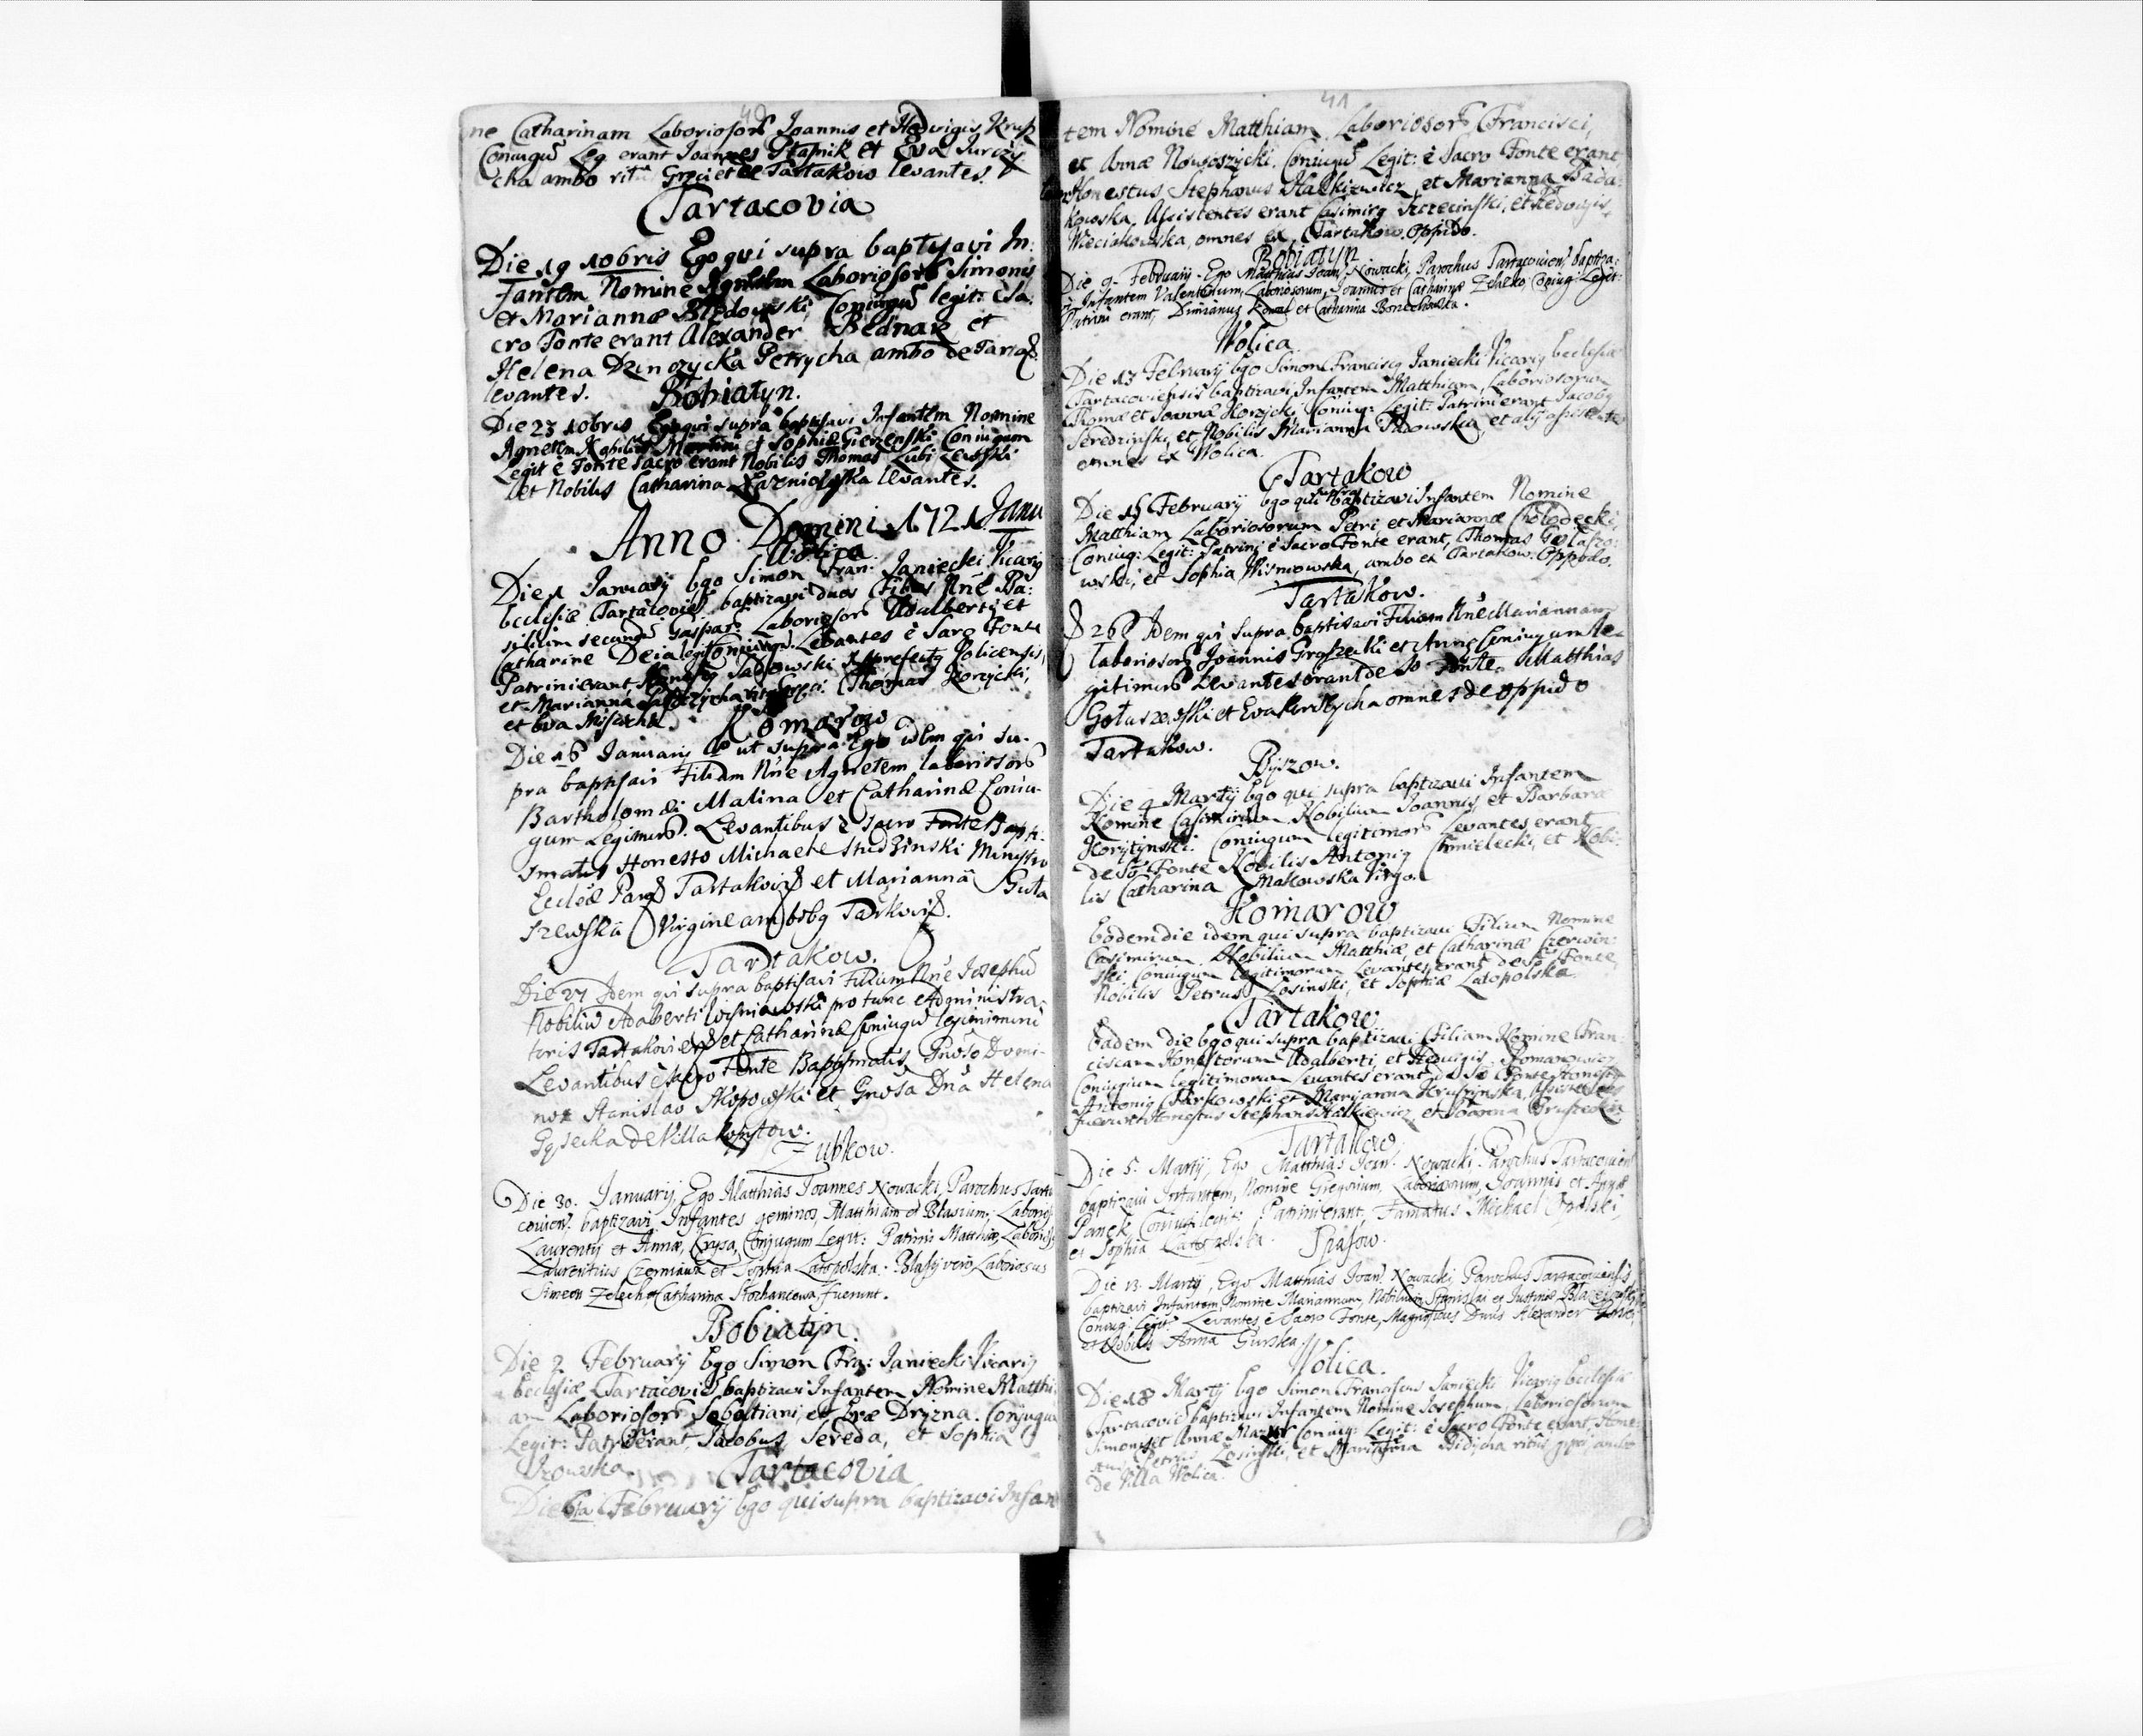 40
ne Catharinam Laboriosorũ Joannis et Hedvigis Krusz
Coniugũ Leg erant Joannes Stapnik et Eva Jurczy
cha ambo ritũ Greci et de Tartakow levantes.
Tartacovia
Die 19 10bris Ego qui supra baptisavi In:
fantem Nomine Agnetem Laboriosorũ Simonis
et Mariannæ Bledowski, Coniugũ legit: è Sa:
cro Fonte erant Alexander Bednarz et
Helena Dzinozycka Petrycha, ambo de Tartaq
levantes.
Bobiatyn.
Die 23 10bris Ego qui supra baptisavi Infantem Nomine
Agnetem Nobiliũ Martini et Sophiæ Gierzenski Coniugum
Legit è Fonte Sacro erant Nobilis Thomas Lubi
et Nobilis Catharina levantes.
Anno Domini 1721 Janu
Wolica.
Die 1 January Ego Simon Fran: Janiecki Vicarig
Ecclesiæ Tartacovieñ baptizavi duos Filios Nñe Ba:
silium secundũ Gaspar: Laboriosorũ Adalberty et
Catharine Deia legit Coniugũ. Levantes è Sacro Fonte
Patrini erant Honestg Sadowski Policensis,
et Marianna ritũ Greci. Thomas Korzycki,
et Eva
Komarow
Die 16 January ut supra Ego idem qui su-
pra baptisavi Filiam Nñe Agnetem laboriosorũ
Bartholomæi Malina et Catharinæ Coniu-
gum Legitimorũ. Levantibus è Sacro Fonte Bapti-
smatis Honesto Michaele Studzinski Ministro
Eccleæ Par Tartakovi et Mariannã Guta
szewskã Virgine ambobg Tarkovi.
Tartakow.
Die 27 Idem qui supra baptisavi Filium Nñe Josephũ
Nobiliũ Adalberti Wisniewski pro tunc Administra-
toris Tartakovien et Catharinæ Coniugũ legitimorũ
Levantibus è Sacro Fonte Baptismatis Gnoso Domi-
no Stanislao Skopowski et Gnosa Dnã Helena
Gąsecka de Villa Kopytow.
Zubkow.
Die 30. Januarij, Ego Matthias Joannes Nowacki, Parochus Tarta
covien: baptizavi Infantes geminos, Matthiam et Blasium, Laborios
Laurentij et Annæ, Krysa, Conjugum Legit: Patrini Matthiæ, Laborios
Laurentius Czerniawa et Sophia Latopolska. Blasij vero, Laboriosus
Simeon Zelech et Catharina Stochancowa, fuerunt.
Bobiatyn.
Die 2 February Ego Simon Fra: Janiecki Vicarig
Ecclesiæ Tartacovieñ baptizavi Infantem Nomine Matthi:
am Laboriosorũ Sebastiani, et Evæ Dryzna. Conjugũ
Legit: Patrini erant, Jacobus Sereda, et Sophia
Tartacovia
Die 6ta February Ego qui supra baptizavi Infan
41
tem Nomine Matthiam Laboriosorũ Francisci,
et Annæ Nowoszycki. Coniugũ Legit: è Sacro Fonte erant
Honestus Stephanus Halkiewicz et Marianna Bada:
kowska, Assistentes erant Casimirg Szczecinski, et Hedvigis
Wieciakowska, omnes ex Tartakow. Oppido.
Bobiatyn
Die 9. February. Ego Matthias Joan: Nowacki, Parochus Tartacovien: baptiza:
vi Infantem Valentinum, Laboriosorum, Joannis et Catharinæ Zelasko, Coniug: Legit:
Patrini erant, Damianus Kowal et Catharina
Wolica
Die 13 February Ego Simon Franciscg Janiecki Vicarig Ecclesiæ
Tartacoviensis baptizavi Infantem Matthiam, Laboriosorum
Thomæ et Joannæ Korzycki Coniug: Legit: Patrini erant Jacobg
Seredzinski, et Nobilis Marianna Sadowska, et alij assistentes
omnes ex Wolica.
Tartakow
Die 15 February Ego qui supra baptizavi Infantem Nomine
Matthiam Laboriosorum Petri, et Mariannæ Cholodecki,
Coniug: Legit: Patrini è Sacro Fonte erant, Thomas
wski, et Sophia Wisniowska, ambo ex Tartakow. Oppido.
Tartakow.
26 Idem qui supra baptisavi Filiam Nñe Mariannam
laboriosorũ Joannis Groszecki et Anne Coniugum le-
gitimorũ Levantes erant de So Fonte. Matthias
Gołuszewski et Eva omnes de oppido
Tartakow.
Byszow.
Die 4 Martij Ego qui supra baptizavi Infantem
Nomine Casimirum Nobilium Joannis, et Barbaræ
Korytynski. Coniugum legitimorũ Levantes erant
de So Fonte Nobilis Antonig Chmielecki, et Nobi:
lis Catharina Makowska Virgo.
Komarow
Eodem die idem qui supra baptizavi Filium Nomine
Casimirum Nobilium Matthiæ, et Catharinæ Czerwin:
ski Coniugum legitimorum Levantes erant de So Fonte
Nobilis Petrus Losinski, et Sophiæ Latopolska.
Tartakow
Eadem die Ego qui supra baptizavi Filiam Nomine Fran:
ciscam Honestorum Adalberti, et Hedvigis Romanowicz
Coniugium legitimorum Levantes erant de So Fonte Honestg
Antonig et Marianna Kruszinska, Assistentes
fuerunt Honestus Stephang Halkiewicz, et Joanna
Tartakow
Die 5. Martij, Ego Matthias Joan: Nowacki Parochus Tartacovien:
baptizavi Infantem, Nomine Gregorium, Laboriosorum, Joannis et Annæ
Panek, Coniug: legit: Patrini erant, Famatus Michael Opolski,
et Sophia
Spasow.
Die 13. Martij, Ego Matthias Joan: Nowacki, Parochus Tartacoviensis
baptizavi Infantem, Nomine Mariannam, Nobilium, Stanislai et Justinæ
Coniug: Legit: Levantes è Sacro Fonte, Magnificus Dnus Alexander
et Nobilis Anna Gurska.
Wolica.
Die 18 Martij Ego Simon Franciscus Janiecki Vicarig Ecclesiæ
Tartacovieñ baptizavi Infantem Nomine Josephum, Laboriosorum
Simonis et Annæ Mazur Coniug: Legit: è Sacro Fonte erant, Hone:
stus Petrus Losinski, et Marianna Didycha ritũs græci, ambo
de Villa Wolica.